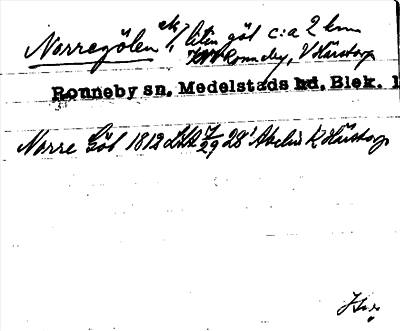 Norregölen ek, liten göl c:a 2 km
NV Ronneby, V Härstorp
Ronneby sn. Medelstads hd. Blek. 1
Norre Göl 1812 LSA 7/29 28' Abelin K. Härstorp